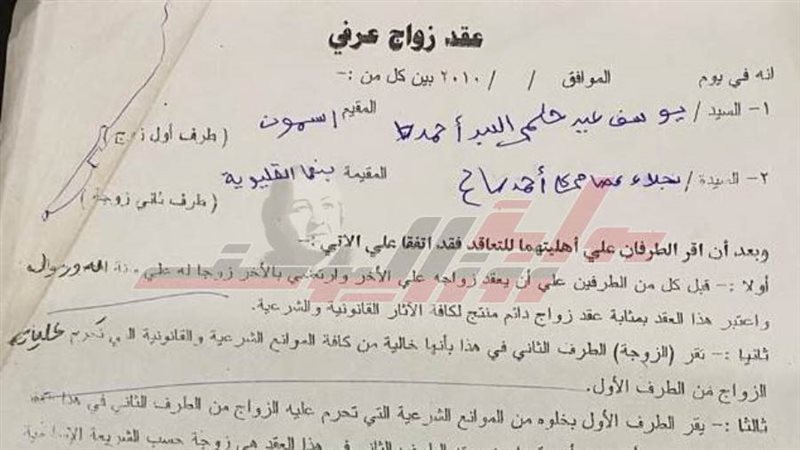 عقد زواج عرفي
انه في يوم الموافق / / ٢٠١٠ بين كل من :-
١- السيد / يوسف عبير حلمي السيد أحمد المقيم اسمون ( طرف أول زوج )
٢- السيدة / نجلاء أحمد المقيمة بنها القليوبية ( طرف ثاني زوجة )
وبعد أن اقر الطرفان علي أهليتهما للتعاقد فقد اتفقا علي الاتي :-
أولا :- قبل كل من الطرفين علي أن يعقد زواجه علي الأخر وارتضي بالأخر زوجا له علي سنة الله ورسوله
واعتبر هذا العقد بمثابة عقد زواج دائم منتج لكافة الآثار القانونية والشرعية.
ثانيا :- تقر (الزوجة) الطرف الثاني في هذا بأنها خالية من كافة الموانع الشرعية والقانونية التي تحرم عليها
الزواج من الطرف الأول.
ثالثا :- يقر الطرف الأول بخلوه من الموانع الشرعية التي تحرم عليه الزواج من الطرف الثاني في هذا
في هذا العقد هي زوجة حسب الشريعة